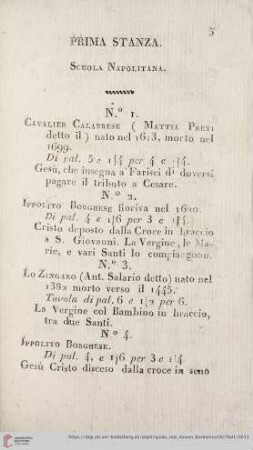 5
PRIMA STANZA.
SCUOLA NAPOLITANA.
N.º 1.
CAVALIER CALABRESE ( MATTIA PRETI
detto il ) nato nel 1613, morto nel
1699.
Di pal. 5 e 1/4 per 4 e 1/4.
Gesù, che insegna a Farisei di doversi
pagare il tributo a Cesare.
N.º 2.
IPPOLITO BORGHESE fioriva nel 1620.
Di pal. 4 e 1/6 per 3 e 1/4.
Cristo deposto dalla Croce in braccio
a S. Giovanni. La Vergine, le Ma-
rie, e vari Santi lo compiangono.
N.º 3.
LO ZINGARO (Ant. Salario detto) nato nel
1382 morto verso il 1445.
Tavola di pal. 6 e 1/2 per 6.
La Vergine col Bambino in braccio,
tra due Santi.
N.º 4.
IPPOLITO BORGHESE.
Di pal. 4, e 1/6 per 3 e 1/4.
Gesù Cristo disceso dalla croce in seno